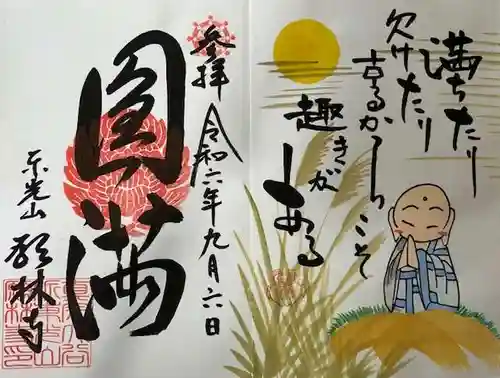 満ちたり
欠けたり
するからこそ
趣きが
ある
参拝
令和六年九月六日
圓満
願林寺